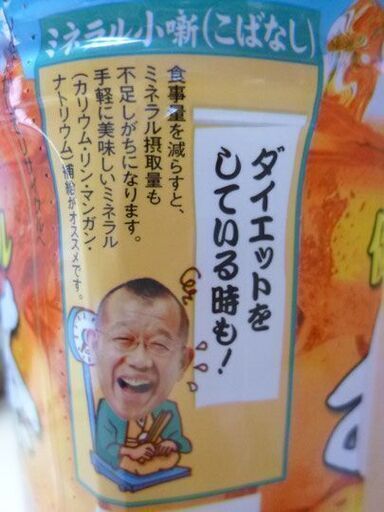 ミネラル小噺(こばなし)
ダイエットを
している時も!
食事量を減らすと、
ミネラル摂取量も
不足しがちになります。
手軽に美味しいミネラル
(カリウム・リン・マンガン・
ナトリウム)補給がオススメです。